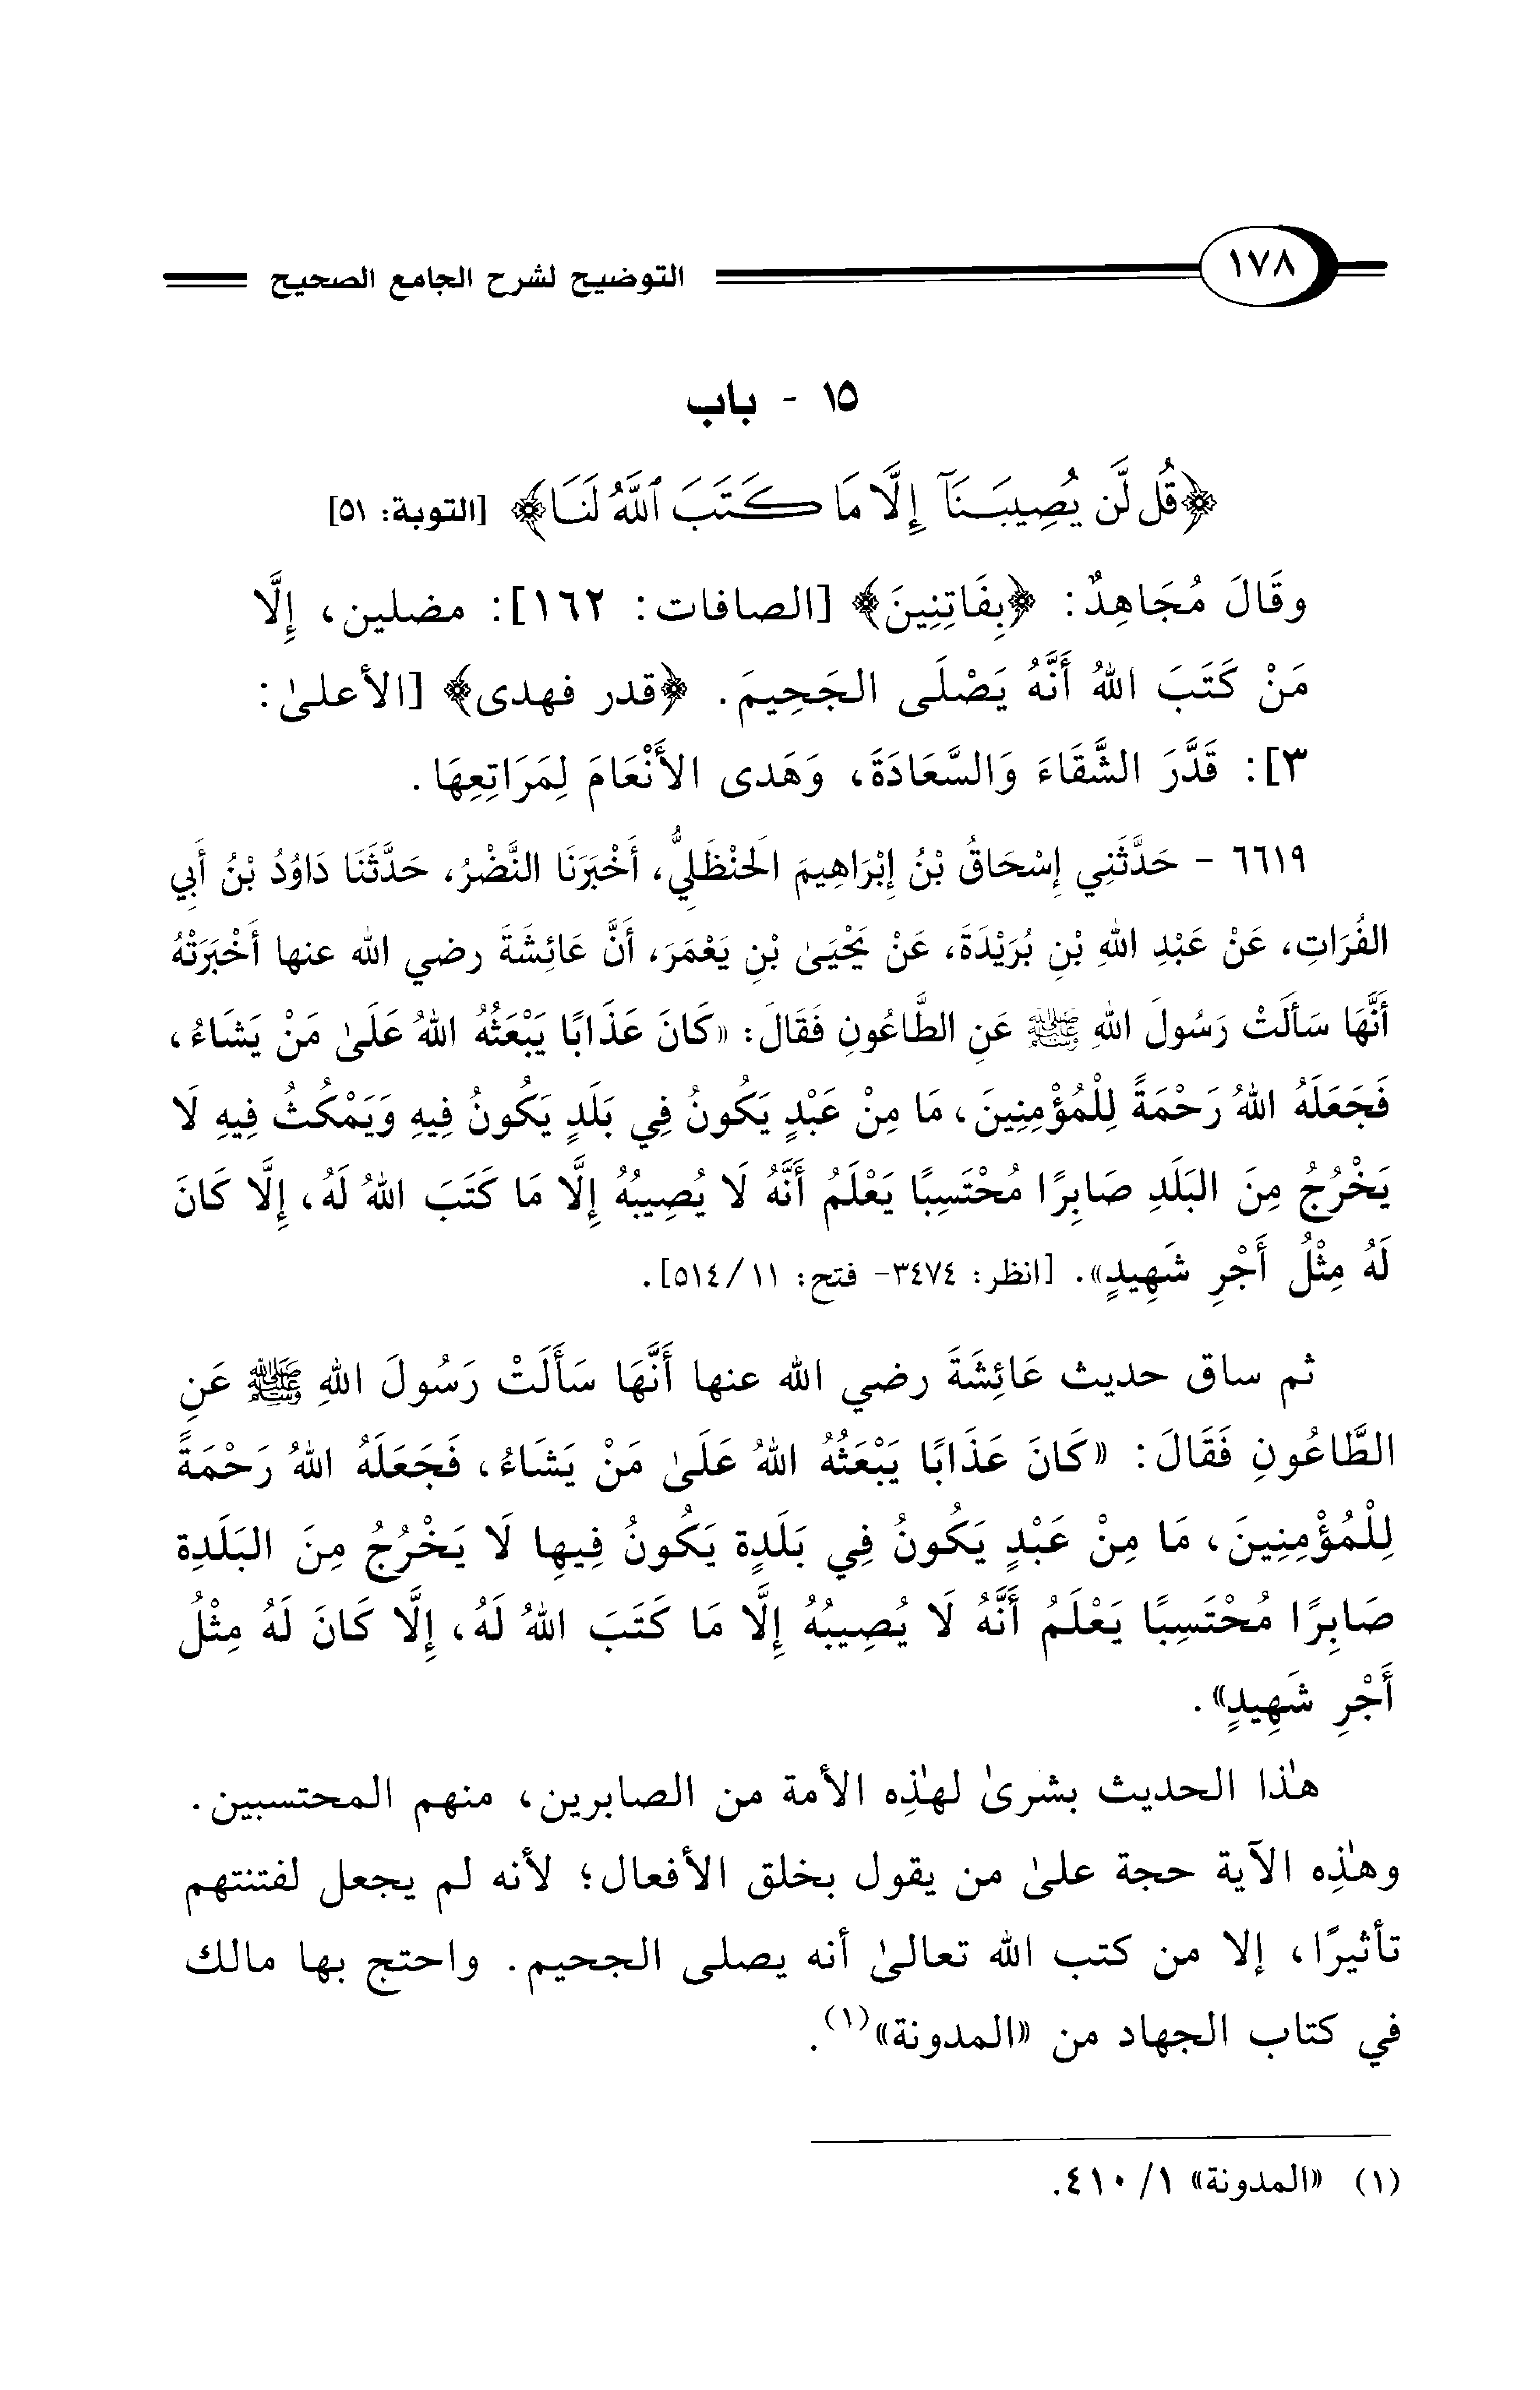 ١٧٨ التوضيح لشرح الجامع الصحيح
١٥ - باب
﴿قُل لَّن يُصِيبَنَآ إِلَّا مَا كَتَبَ ٱللَّهُ لَنَا﴾ [التوبة: ٥١]
وقَالَ مُجَاهِدٌ: ﴿بِفَاتِنِينَ﴾ [الصافات: ١٦٢]: مضلين، إِلَّا
مَنْ كَتَبَ اللهُ أَنَّهُ يَصْلَى الجَحِيمَ. ﴿قدر فهدى﴾ [الأعلىٰ:
٣]: قَدَّرَ الشَّقَاءَ وَالسَّعَادَةَ، وَهَدى الأَنْعَامَ لِمَرَاتِعِهَا.
٦٦١٩ - حَدَّثَنِي إِسْحَاقُ بْنُ إِبْرَاهِيمَ الَحنْظَلِيُّ، أَخْبَرَنَا النَّضْرُ، حَدَّثَنَا دَاوُدُ بْنُ أَبِي
الفُرَاتِ، عَنْ عَبْدِ اللهِ بْنِ بُرَيْدَةَ، عَنْ يَحْيَىٰ بْنِ يَعْمَرَ، أَنَّ عَائِشَةَ رضي الله عنها أَخْبَرَتْهُ
أَنَّهَا سَأَلَتْ رَسُولَ اللهِ ﷺ عَنِ الطَّاعُونِ فَقَالَ: «كَانَ عَذَابًا يَبْعَثُهُ اللهُ عَلَىٰ مَنْ يَشَاءُ،
فَجَعَلَهُ اللهُ رَحْمَةً لِلْمُؤْمِنِينَ، مَا مِنْ عَبْدٍ يَكُونُ فِي بَلَدٍ يَكُونُ فِيهِ وَيَمْكُثُ فِيهِ لَا
يَخْرُجُ مِنَ البَلَدِ صَابِرًا مُحْتَسِبًا يَعْلَمُ أَنَّهُ لَا يُصِيبُهُ إِلَّا مَا كَتَبَ اللهُ لَهُ، إِلَّا كَانَ
لَهُ مِثْلُ أَجْرِ شَهِيدٍ». [انظر: ٣٤٧٤- فتح: ١١/٥١٤].
ثم ساق حديث عَائِشَةَ رضي الله عنها أَنَّهَا سَأَلَتْ رَسُولَ اللهِ ﷺ عَنِ
الطَّاعُونِ فَقَالَ: «كَانَ عَذَابًا يَبْعَثُهُ اللهُ عَلَىٰ مَنْ يَشَاءُ، فَجَعَلَهُ اللهُ رَحْمَةً
لِلْمُؤْمِنِينَ، مَا مِنْ عَبْدٍ يَكُونُ فِي بَلَدٍة يَكُونُ فِيهِا لَا يَخْرُجُ مِنَ البَلَدِة
صَابِرًا مُحْتَسِبًا يَعْلَمُ أَنَّهُ لَا يُصِيبُهُ إِلَّا مَا كَتَبَ اللهُ لَهُ، إِلَّا كَانَ لَهُ مِثْلُ
أَجْرِ شَهِيدٍ».
هٰذا الحديث بشرىٰ لهٰذِه الأمة من الصابرين، منهم المحتسبين.
وهٰذِه الآية حجة علىٰ من يقول بخلق الأفعال؛ لأنه لم يجعل لفتنتهم
تأثيرًا، إلا من كتب الله تعالىٰ أنه يصلى الجحيم. واحتج بها مالك
في كتاب الجهاد من «المدونة»(١).
(١) «المدونة» ١/ ٤١٠.